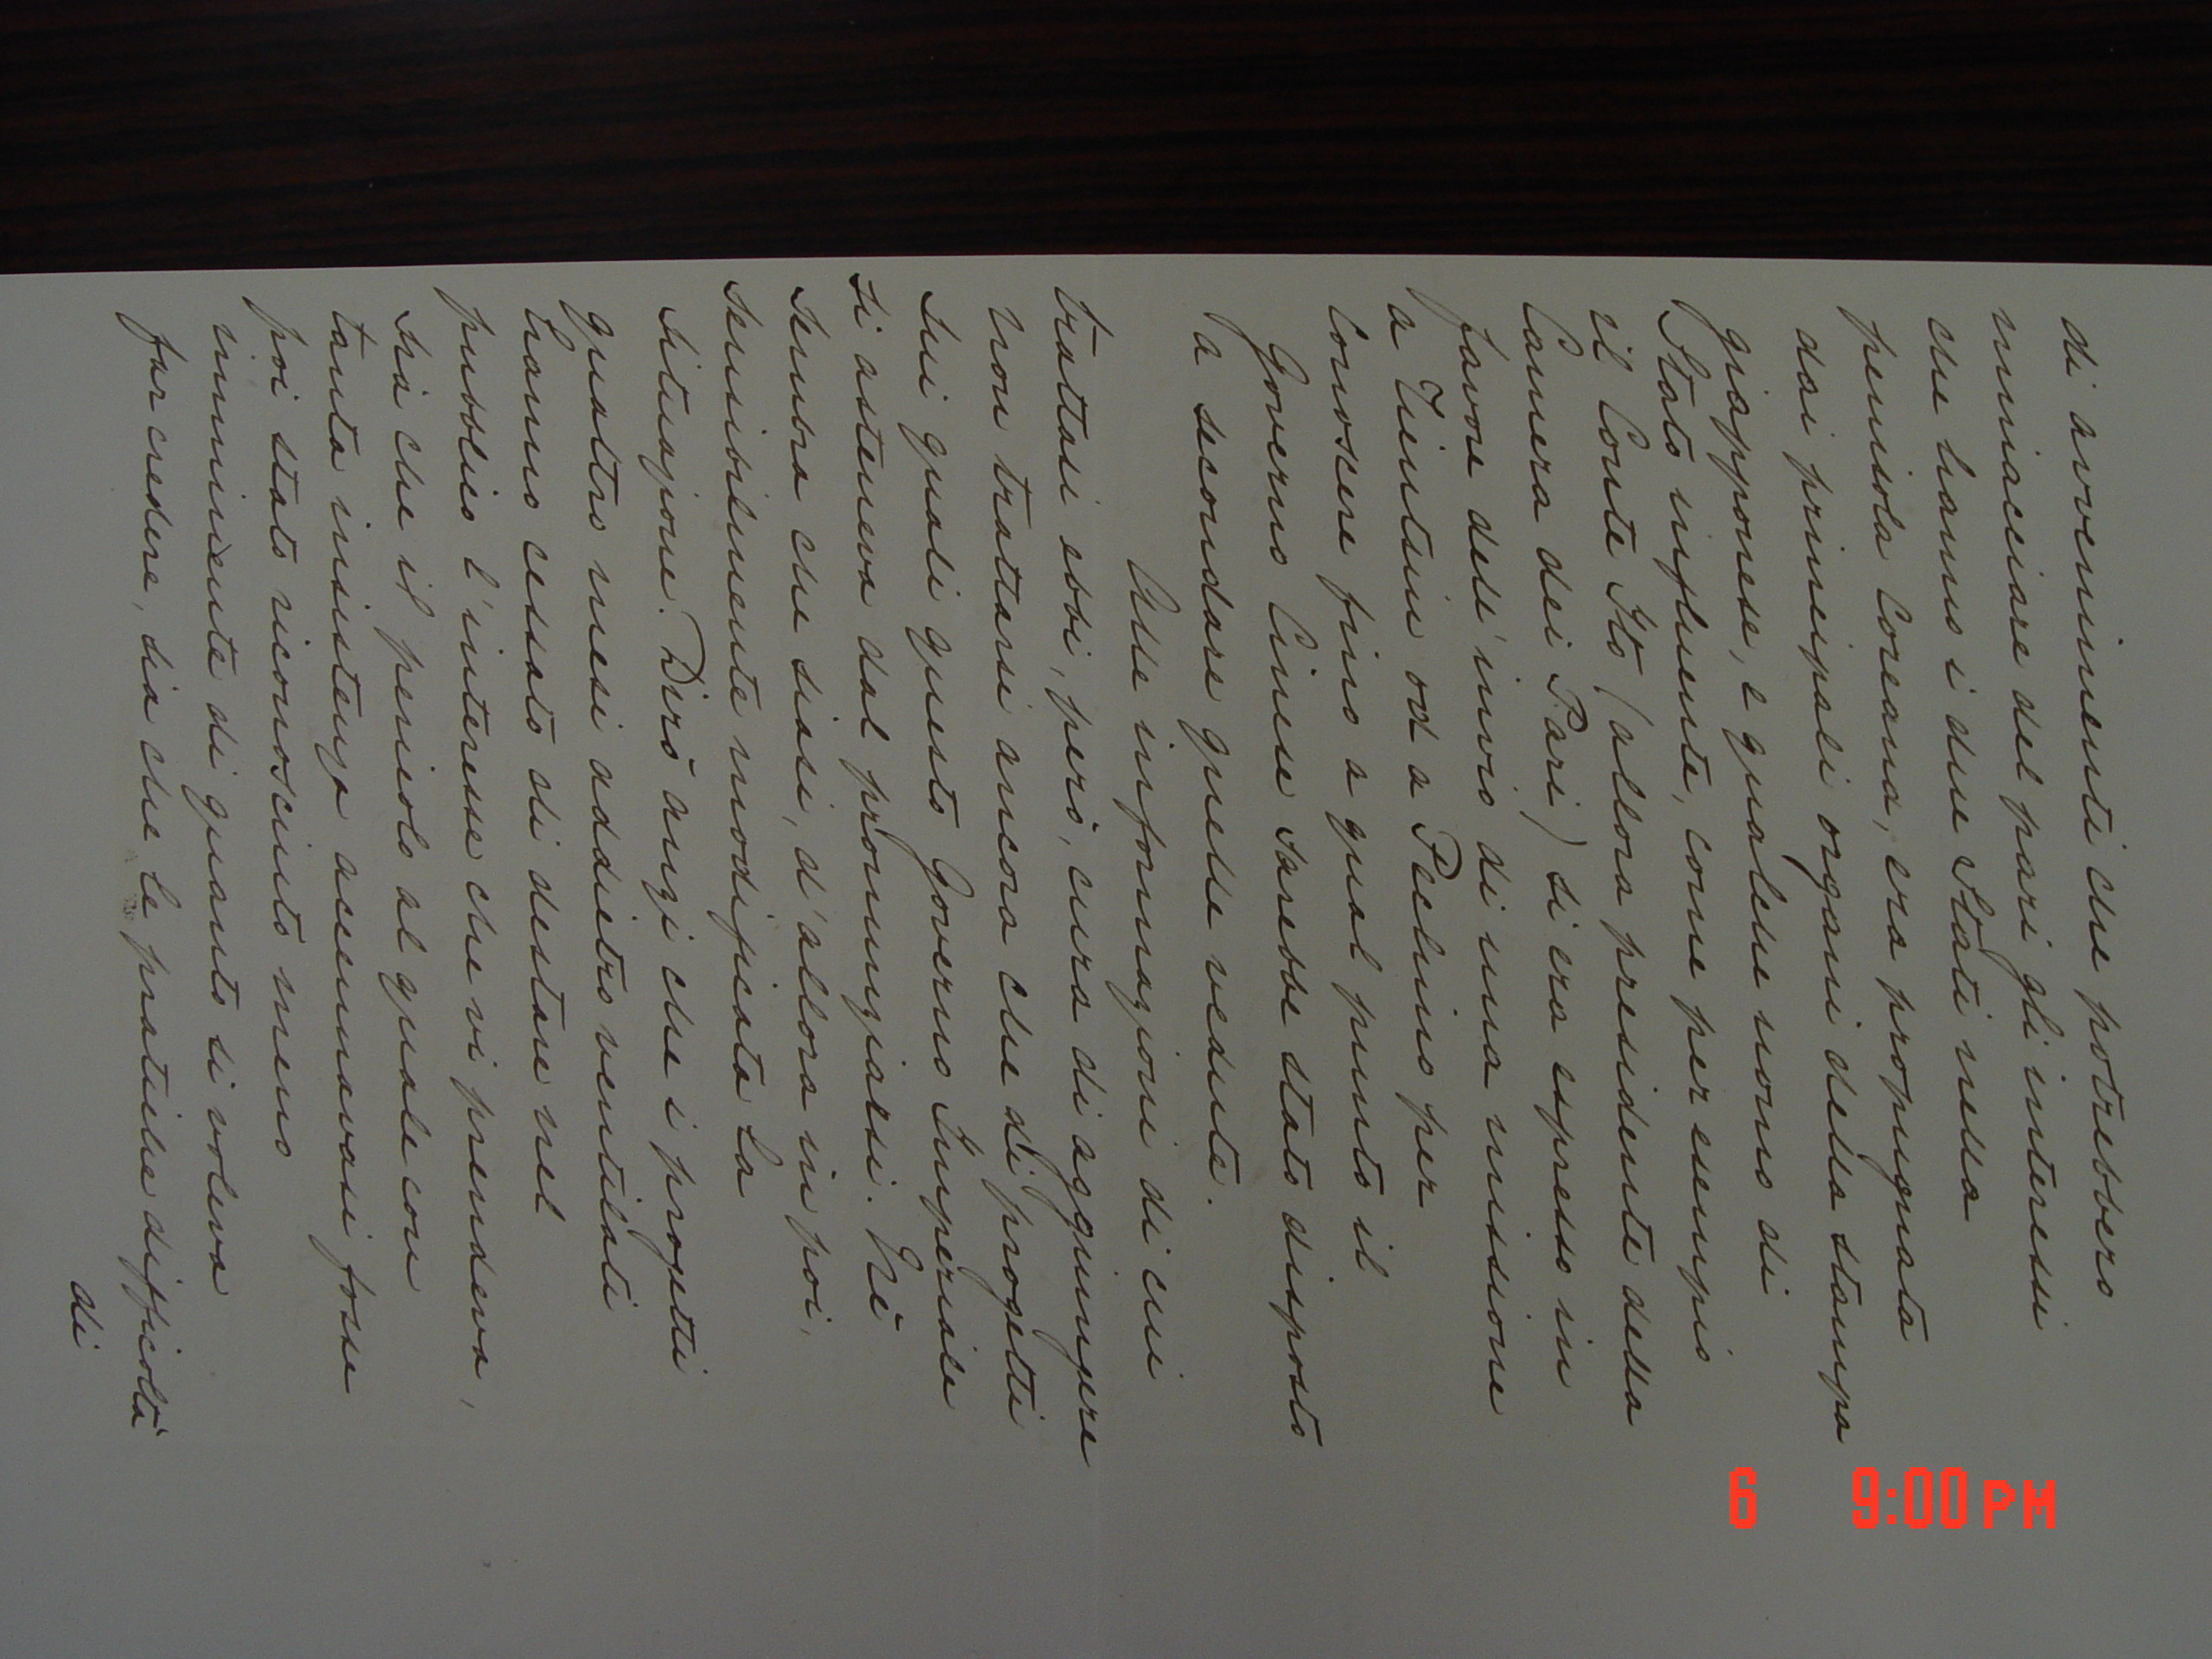 di avvenimenti che potrebbero
minacciare del pari gli interessi
che hanno i due Stati nella
penisola Coreana, era propugnata
dai principali organi della stampa
giapponese, e qualche uomo di
Stato influente, come per esempio
il Conte Ito (allora presidente della
Camera dei Pari) si era espresso in
favore dell'invio di una missione
a Tientsin od a Pechino per
conoscere fino a qual punto il
Governo Cinese sarebbe stato disposto
a secondare quelle vedute.
Alle informazioni di cui
trattasi ebbi, però, cura di aggiungere
non trattarsi ancora che di progetti
sui quali questo Governo Imperiale
si asteneva dal pronunziarsi. Nè
sembra che siasi, d'allora in poi,
sensibilmente modificata la
situazione. Dirò anzi che i progetti
quattro mesi addietro ventilati
hanno cessato di destare nel
pubblico l'interesse che vi prendeva,
sia che il pericolo al quale con
tanta insistenza accennavasi fosse
poi stato riconosciuto meno
imminente di quanto si voleva
far credere, sia che le pratiche difficoltà
di
6 9:00PM